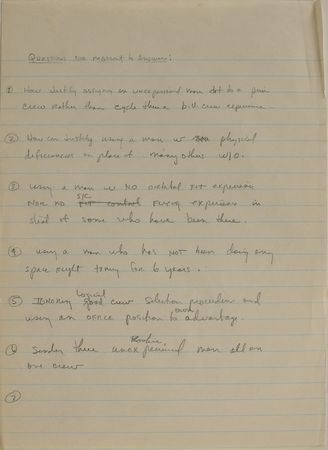 Questions for Management to Answer:
① How justify assigning an unexperienced man dct to a prim
crew rather than cycle thru a B.U. crew experience.
② How can justify using a man w physical
deficiencies in place of many others w/o.
③ Using a man w NO orbital FLT experience
Nor NO S/C FLT control Flying experience in
stead of some who have been there.
④ Using a man who has NOT been doing any
space flight tmng for 6 years.
⑤ IGNORING Logical good crew selection procedures and
using an office position to own advantage.
⑥ Sending three Rookie, unexperienced men all on
one crew
⑦